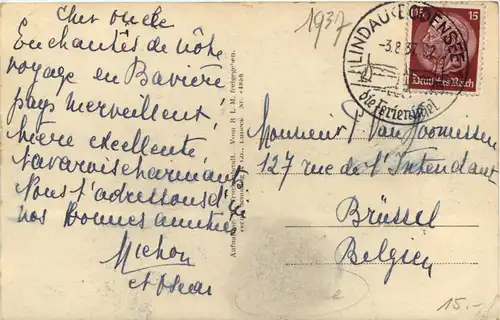 Cher oncle
Enchantés de nôtre
voyage en Bavière
pays merveilleux,
bière excellente
bavarois charmants
Nous t'adressons d'
nos bonnes amitiés
Michou
et Oscar
1937
LINDAU (BODENSEE)
3.8.37
die Ferieninsel
15
Deutsches Reich
Monsieur J. Van Toomissen
127 rue de l'Intendant
Brüssel
Belgien
15.-